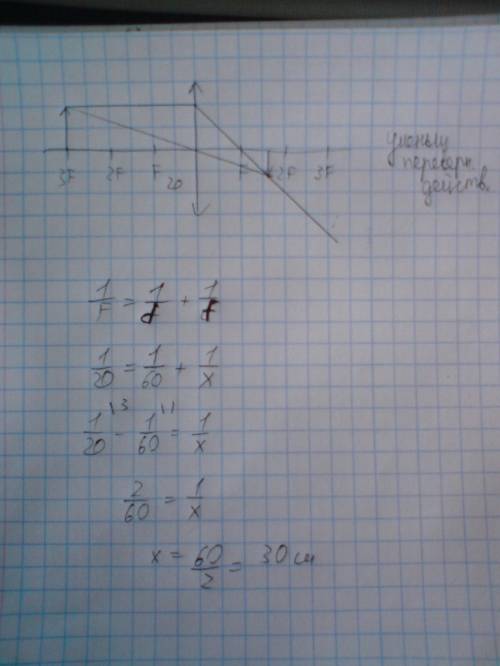 3F 2F F 20 F 2F 3F
переверн.
действ.
1/F = 1/d + 1/f
1/20 = 1/60 + 1/x
1/20 \3 - 1/60 \1 = 1/x
2/60 = 1/x
x = 60/2 = 30 см